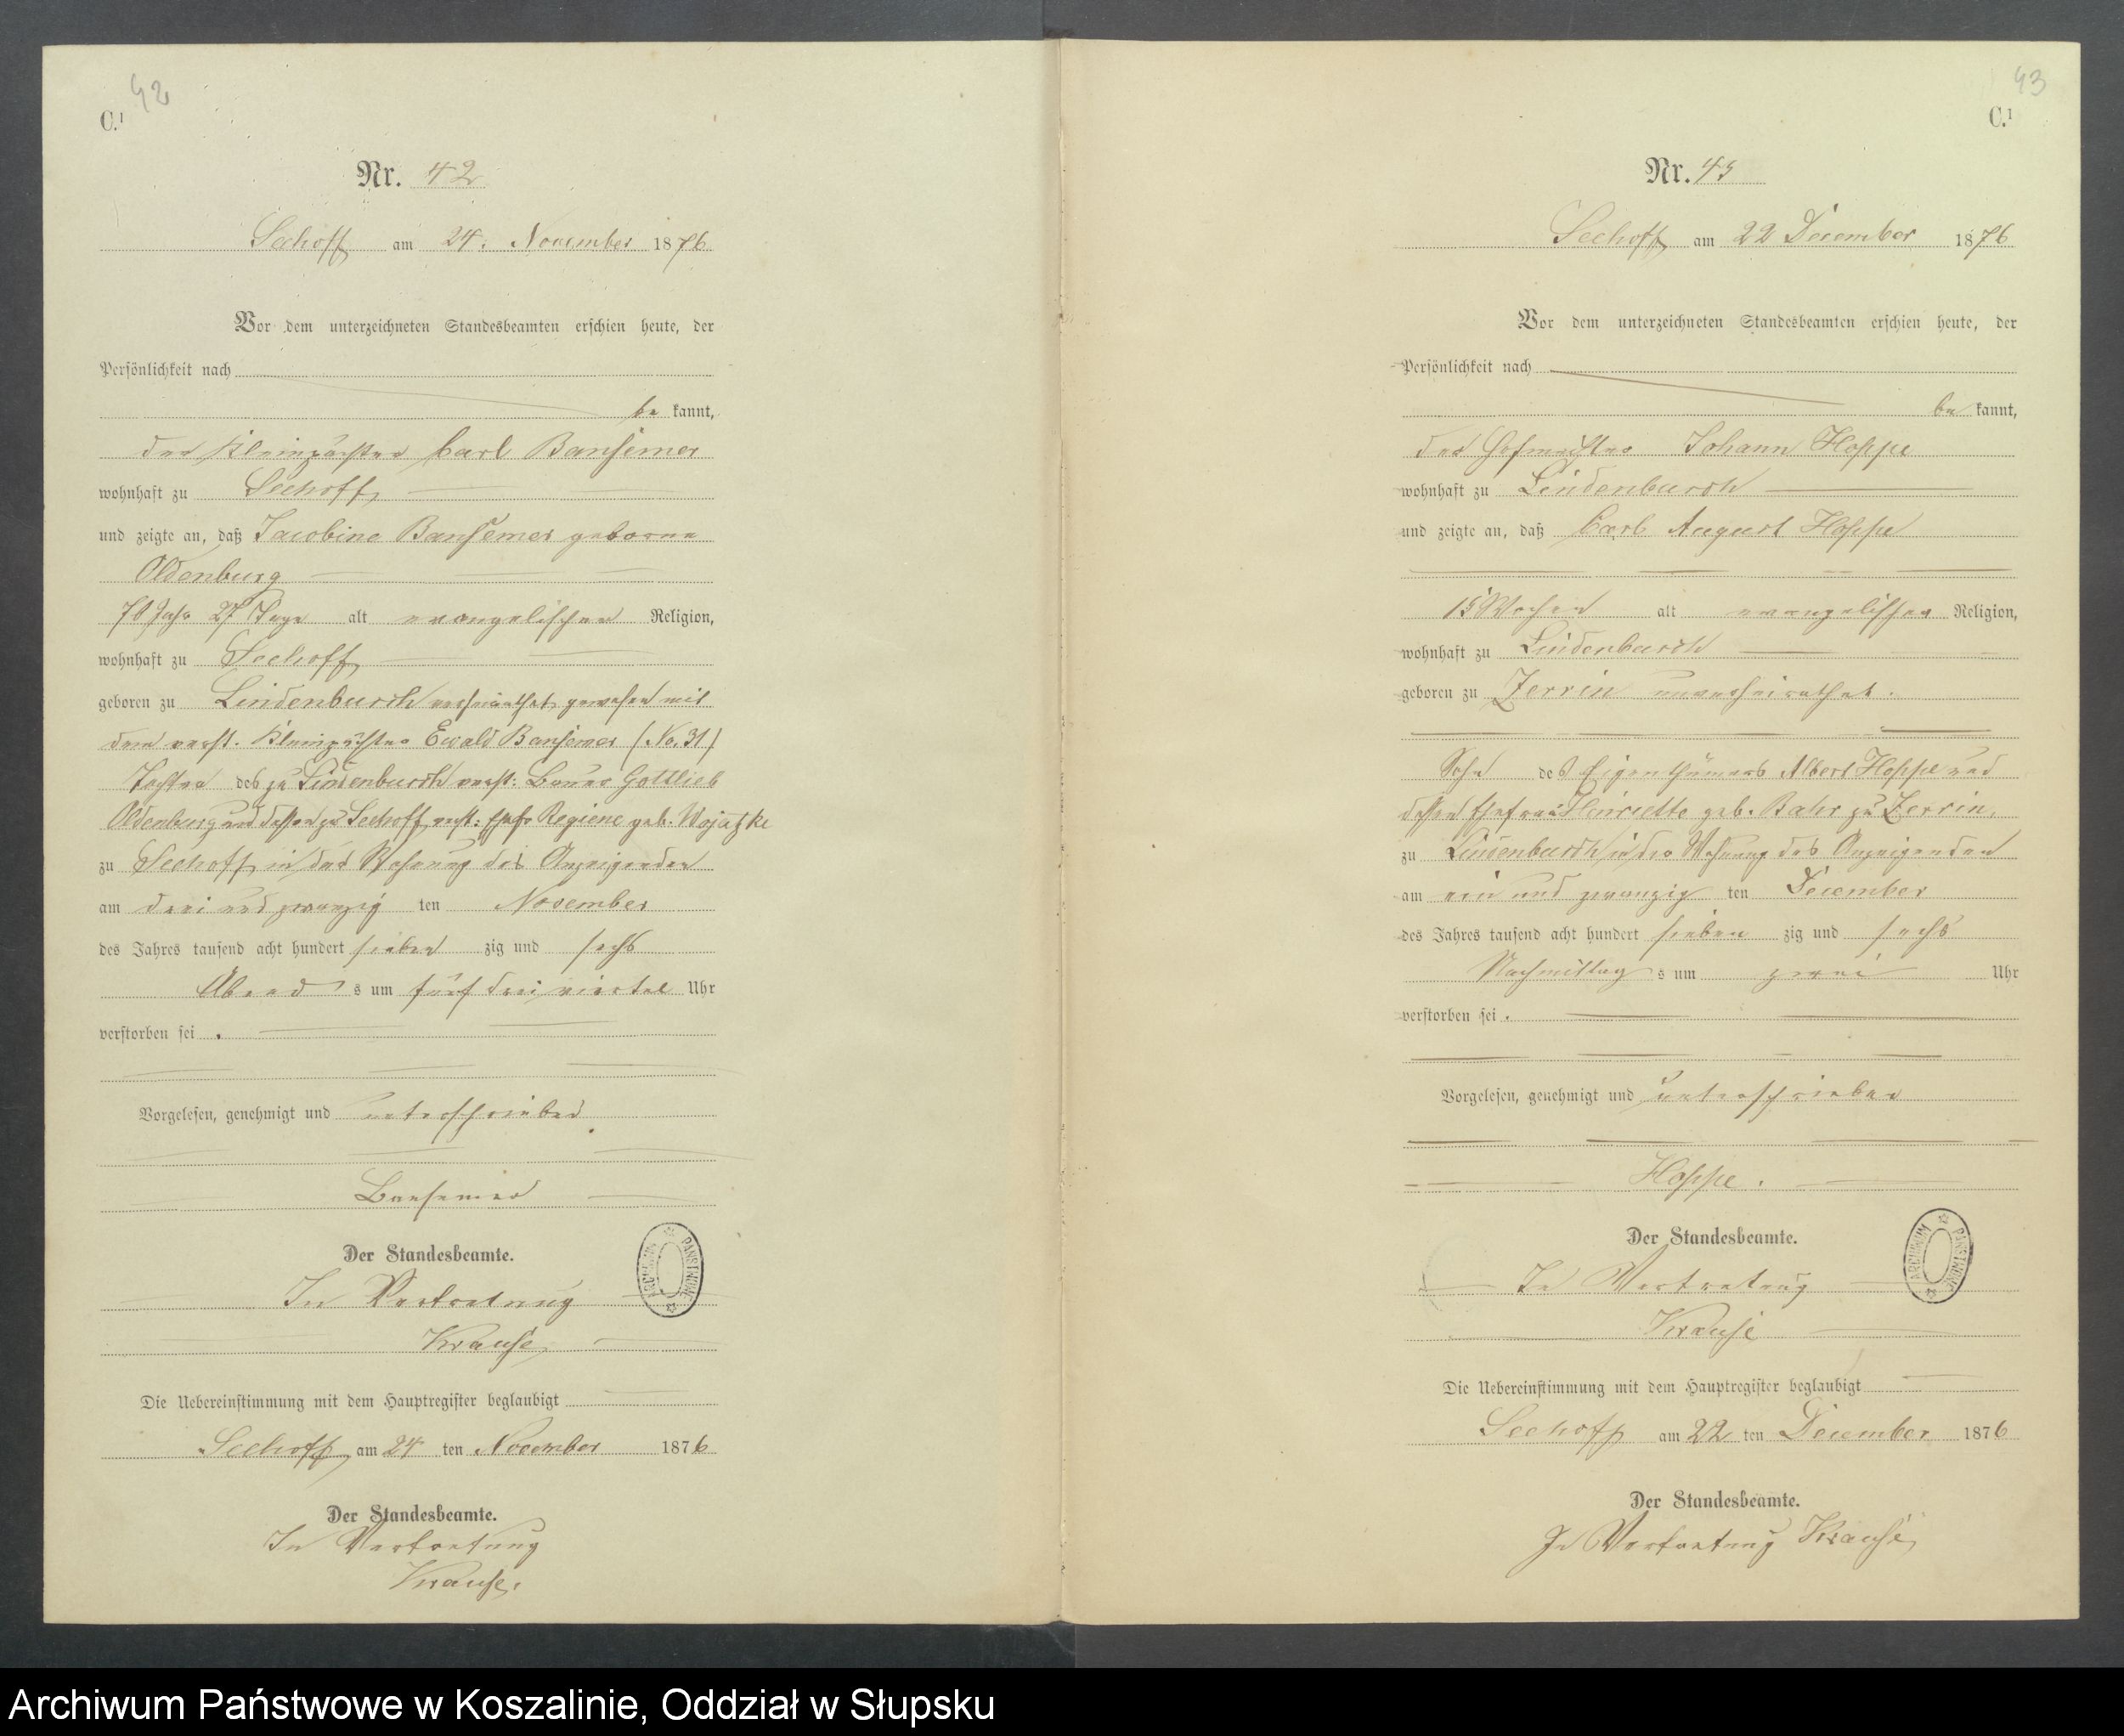 42
C.¹
Nr. 42
Seehoff am 24. November 1876
Vor dem unterzeichneten Standesbeamten erschien heute, der
Persönlichkeit nach
be kannt,
der Kleinpächter Carl Bansemer
wohnhaft zu Seehoff
und zeigte an, daß Jacobine Bansemer geborne
Oldenburg
70 Jahr 27 Tage alt evangelischer Religion,
wohnhaft zu Seehoff
geboren zu Lindenbusch verheirathet gewesen mit
dem verst. Kleinpächter Ewald Bansemer (No. 31)
Tochter des zu Lindenbusch verst: Bauer Gottlieb
Oldenburg und dessen zu Seehoff verst: Ehefr Regiene geb. Wojatzke
zu Seehoff in der Wohnung des Anzeigenden
am drei und zwanzig ten November
des Jahres tausend acht hundert sieben zig und sechs
Abend s um fünf drei viertel Uhr
verstorben sei .
Vorgelesen, genehmigt und unterschrieben
Bansemer
Der Standesbeamte.
In Vertretung
Krause
ARCHIWUM PAŃSTWOWE
Die Uebereinstimmung mit dem Hauptregister beglaubigt
Seehoff am 24 ten November 1876
Der Standesbeamte.
In Vertretung
Krause.
43
C.¹
Nr. 43
Seehoff am 22 December 1876
Vor dem unterzeichneten Standesbeamten erschien heute, der
Persönlichkeit nach
be kannt,
der Hofmeister Johann Hoppe
wohnhaft zu Lindenbusch
und zeigte an, daß Carl August Hoppe
15 Wochen alt evangelischer Religion,
wohnhaft zu Lindenbusch
geboren zu Zerrin unverheirathet.
Sohn des Eigenthümers Albert Hoppe und
dessen Ehefrau Henriette geb. Bahr zu Zerrin,
zu Lindenbusch in der Wohnung des Anzeigenden
am ein und zwanzig ten December
des Jahres tausend acht hundert sieben zig und sechs
Nachmittag s um zwei Uhr
verstorben sei .
Vorgelesen, genehmigt und unterschrieben
Hoppe.
Der Standesbeamte.
In Vertretung
Krause
ARCHIWUM PAŃSTWOWE
Die Uebereinstimmung mit dem Hauptregister beglaubigt
Seehoff am 22 ten December 1876
Der Standesbeamte.
In Vertretung Krause
Archiwum Państwowe w Koszalinie, Oddział w Słupsku